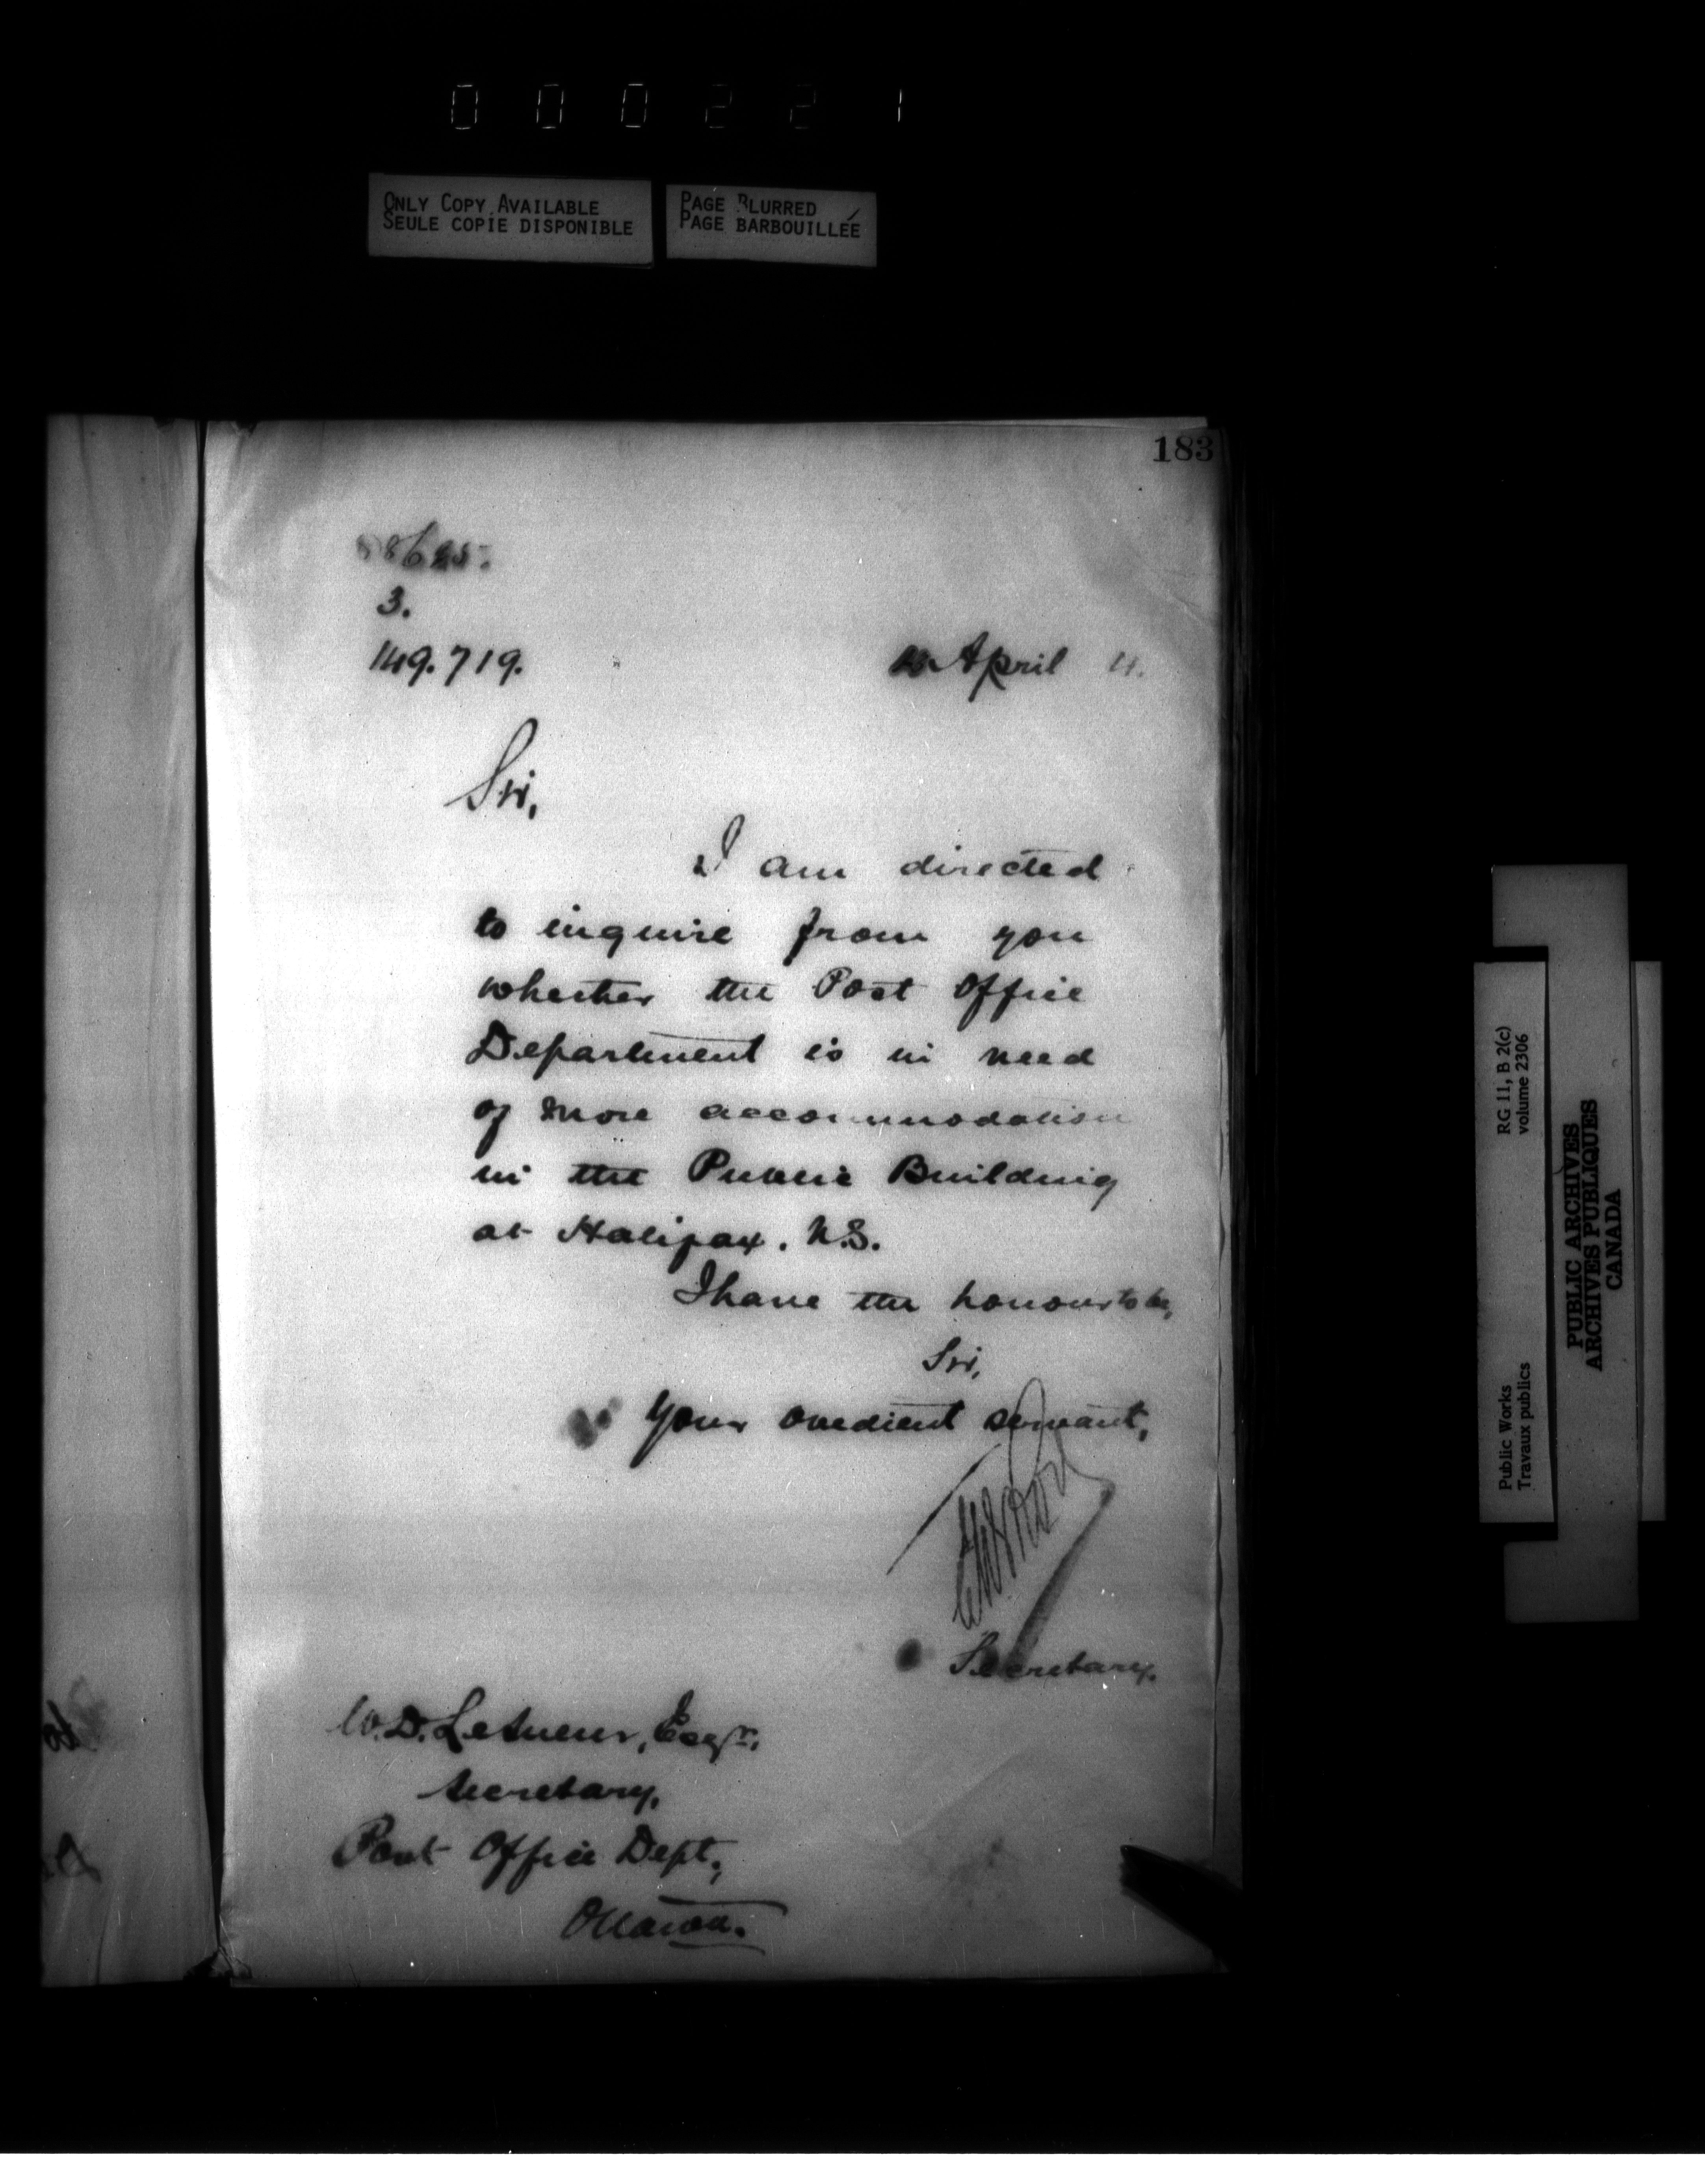 000221
ONLY COPY AVAILABLE
SEULE COPIE DISPONIBLE
PAGE BLURRED
PAGE BARBOUILLÉE
183
3.
149.719.
April
Sir,
I am directed
to inquire from you
whether the Post Office
Department is in need
of more accommodation
in the Public Building
at Halifax. N.S.
I have the honour to be,
Sir,
Your obedient servant,
Secretary.
W.D. LeSueur, Esqr.,
Secretary,
Post Office Dept.,
Ottawa.
RG 11, B 2(c)
volume 2306
Public Works
Travaux publics
PUBLIC ARCHIVES
ARCHIVES PUBLIQUES
CANADA